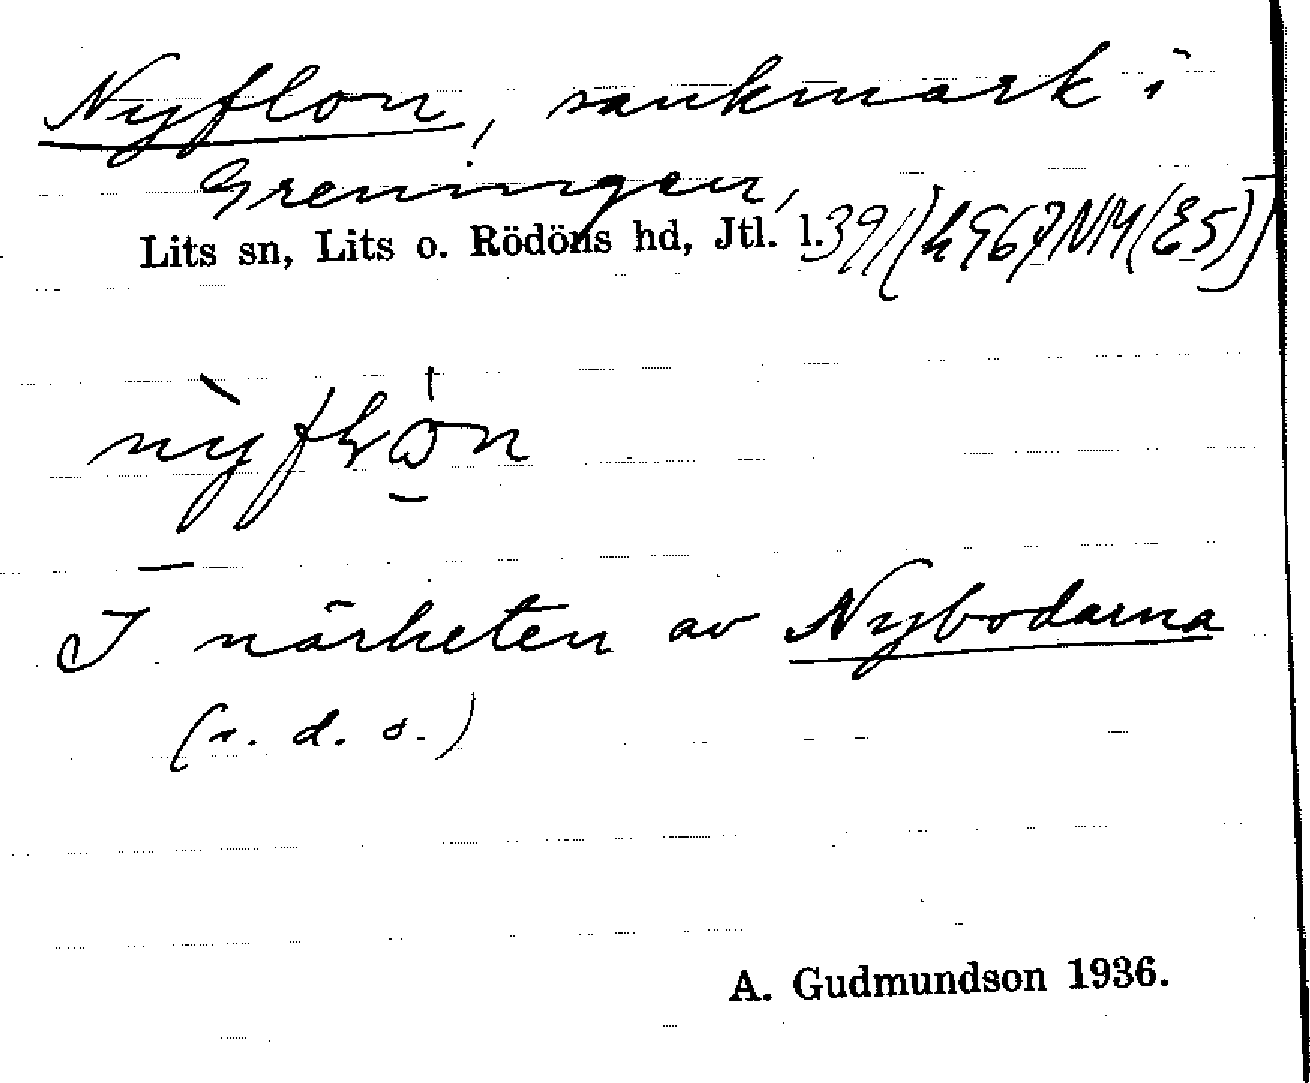 Nyflon, sankmark i
Greningen,
Lits sn, Lits o. Rödöns hd, Jtl. l.39/
I närheten av Nybodarna
(s. d. o.)
A. Gudmundson 1936.